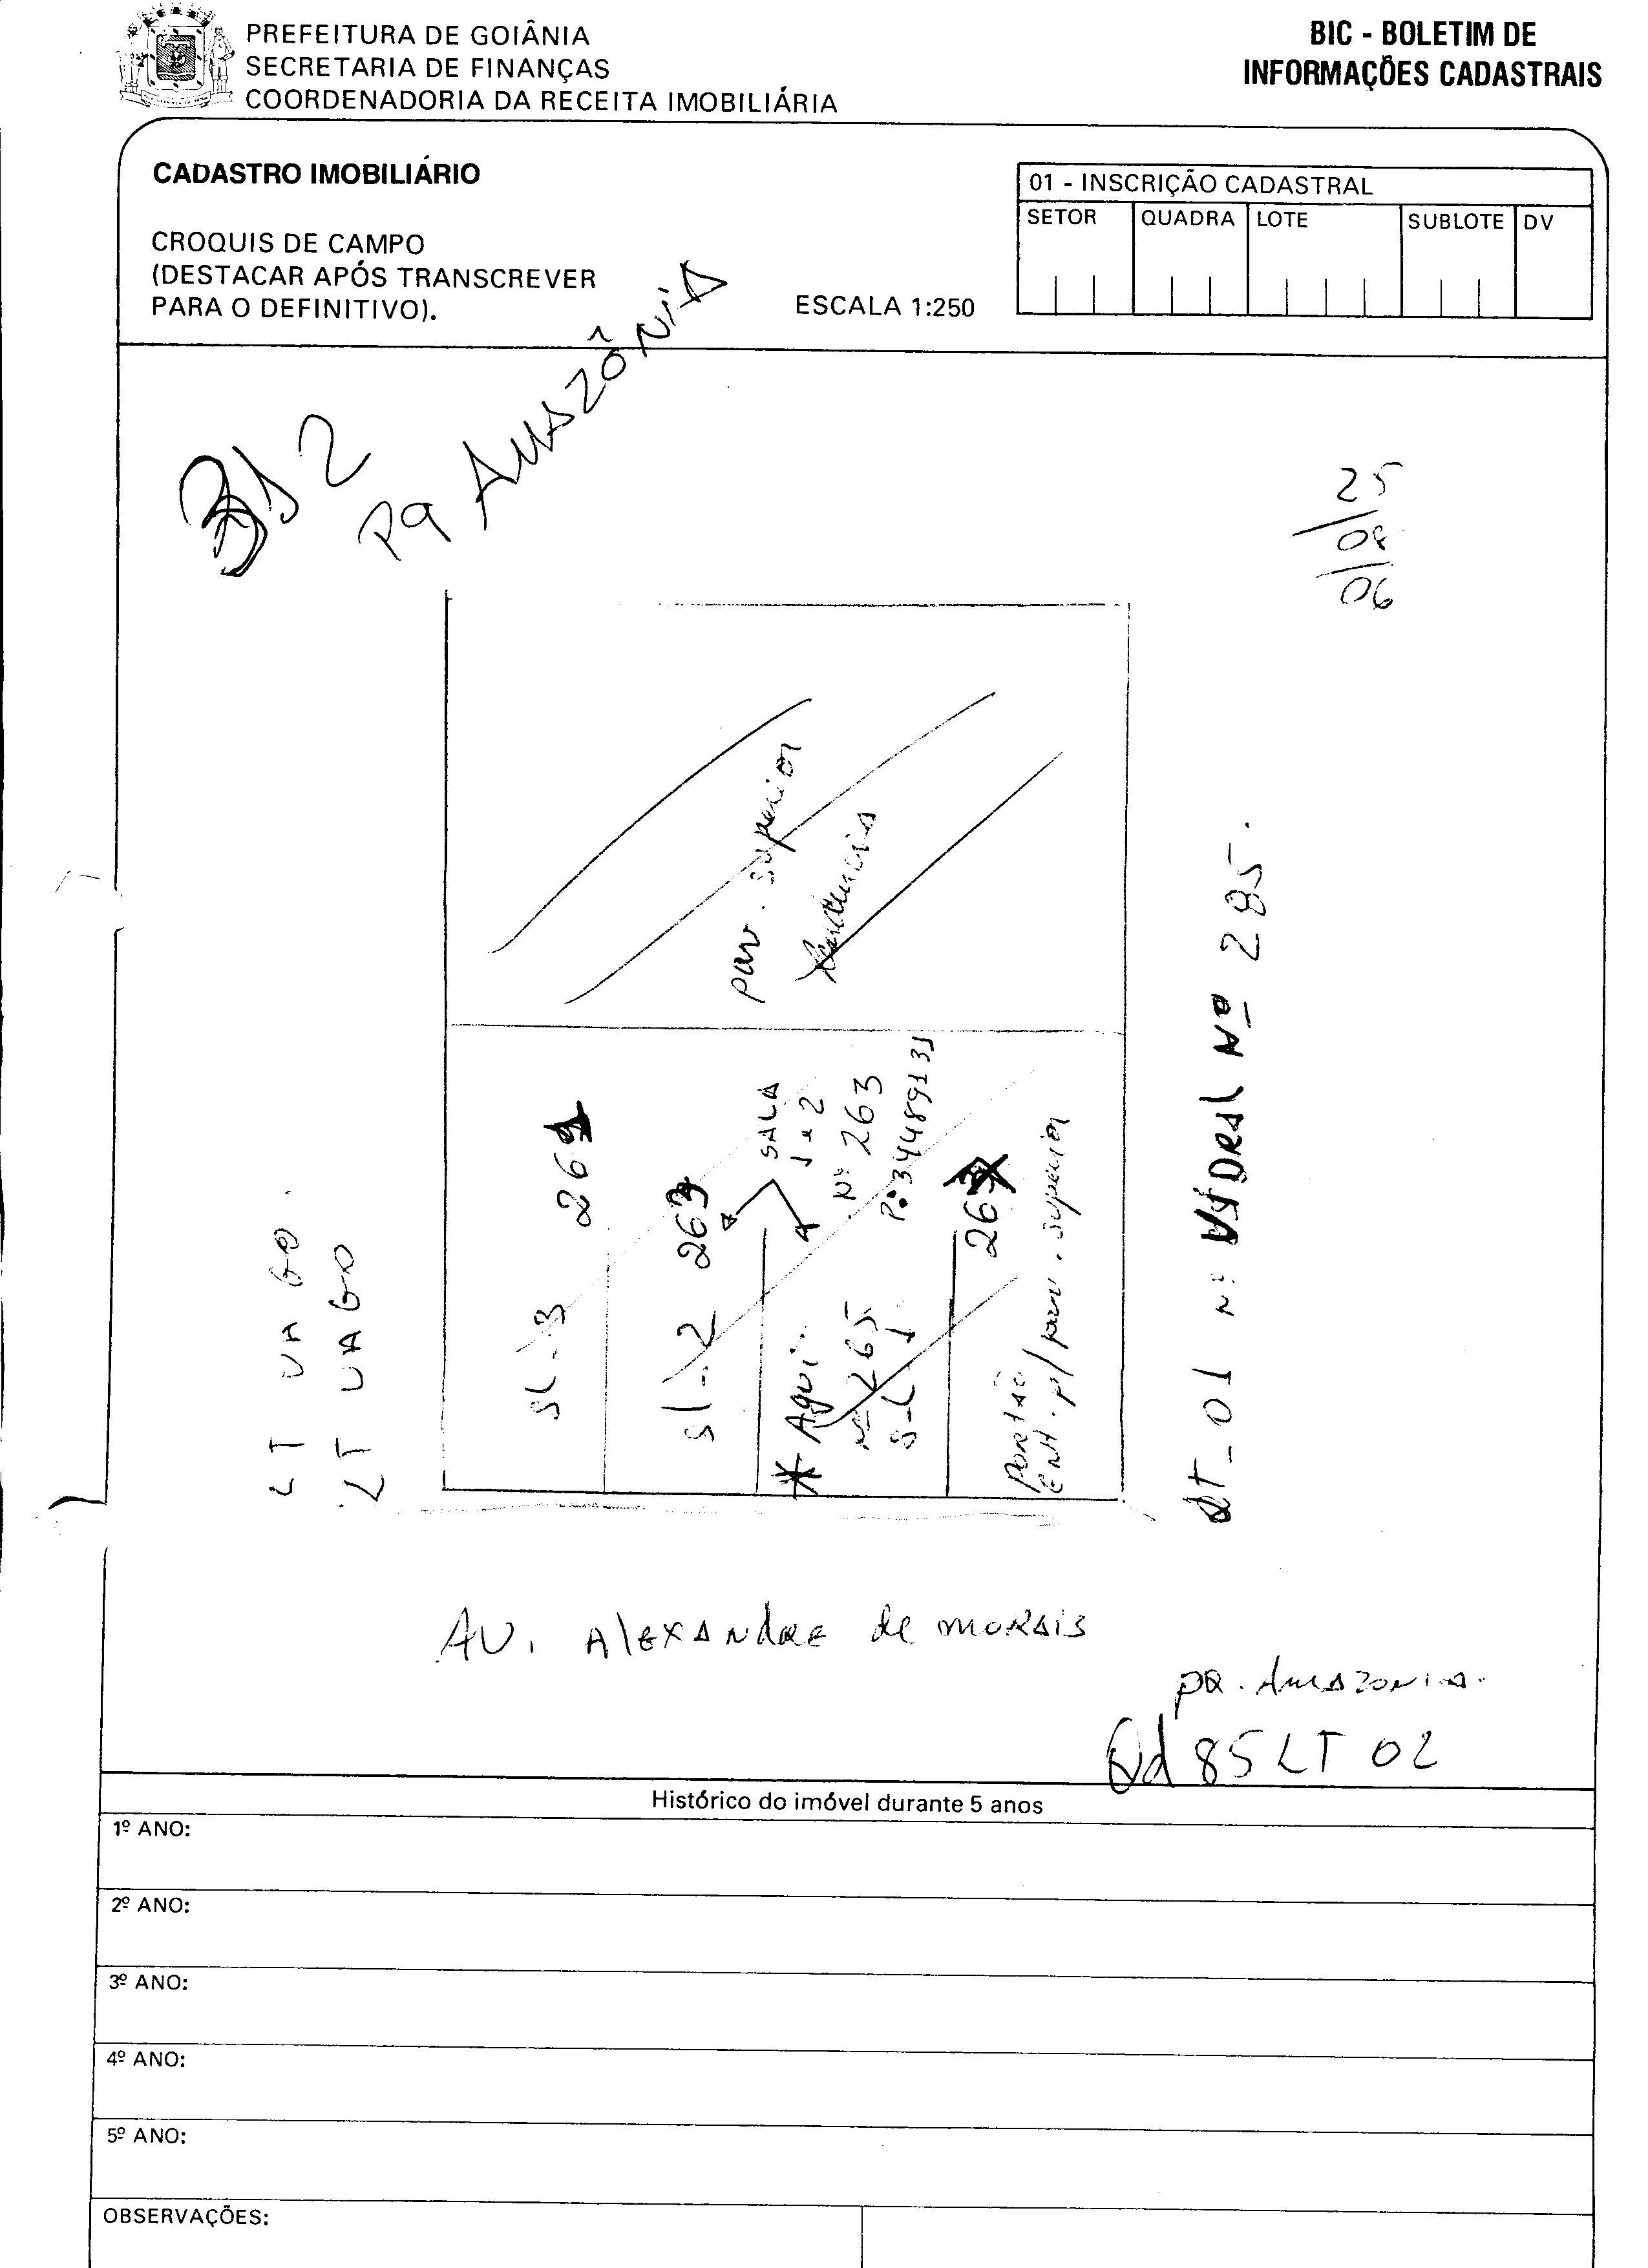 PREFEITURA DE GOIÂNIA
SECRETARIA DE FINANÇAS
COORDENADORIA DA RECEITA IMOBILIÁRIA
BIC - BOLETIM DE
INFORMAÇÕES CADASTRAIS
CADASTRO IMOBILIÁRIO
CROQUIS DE CAMPO
(DESTACAR APÓS TRANSCREVER
PARA O DEFINITIVO).
ESCALA 1:250
01 - INSCRIÇÃO CADASTRAL
SETOR QUADRA LOTE SUBLOTE DV
312
Pq AMAZÔNIA
25
/08
/06
pav. superior
LT VAGO.
LT VAGO
sl-3 261
sl-2 263
SALA
1 e 2
Nº 263
P: 34489131
* Aqui.
Nº 265
sl-1
Portão
Ent. p/ pav. superior
LT-01 Nº 285.
AV. AlEXANdRE de mORAIS
PQ. AMAZONIA.
Qd 85 LT 02
Histórico do imóvel durante 5 anos
1º ANO:
2º ANO:
3º ANO:
4º ANO:
5º ANO:
OBSERVAÇÕES: